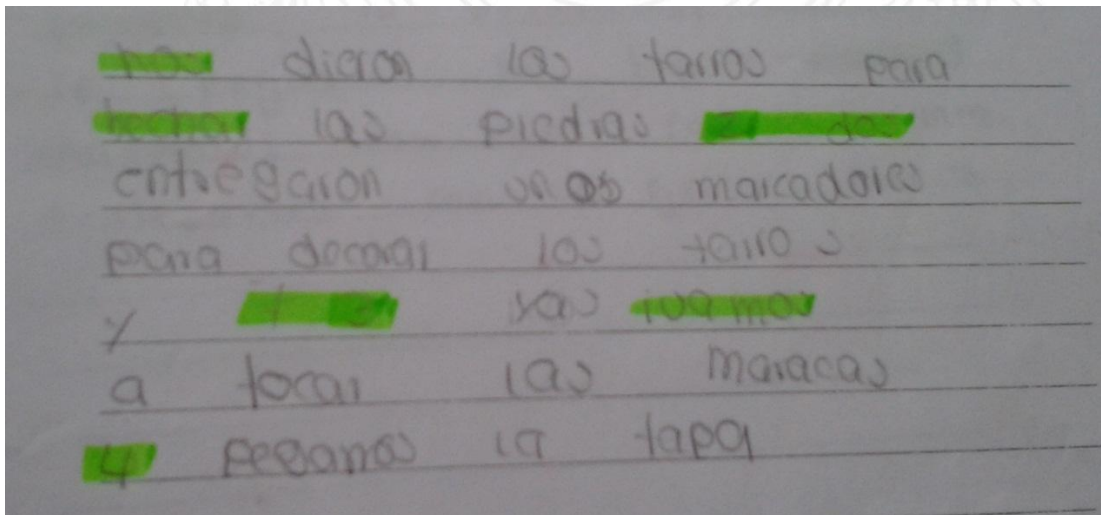 nos dieron los tarros para
hechar las piedras nos
entregaron unos marcadores
para decorar los tarros
y yas ivamos
a tocar las maracas
4 pegamos la tapa